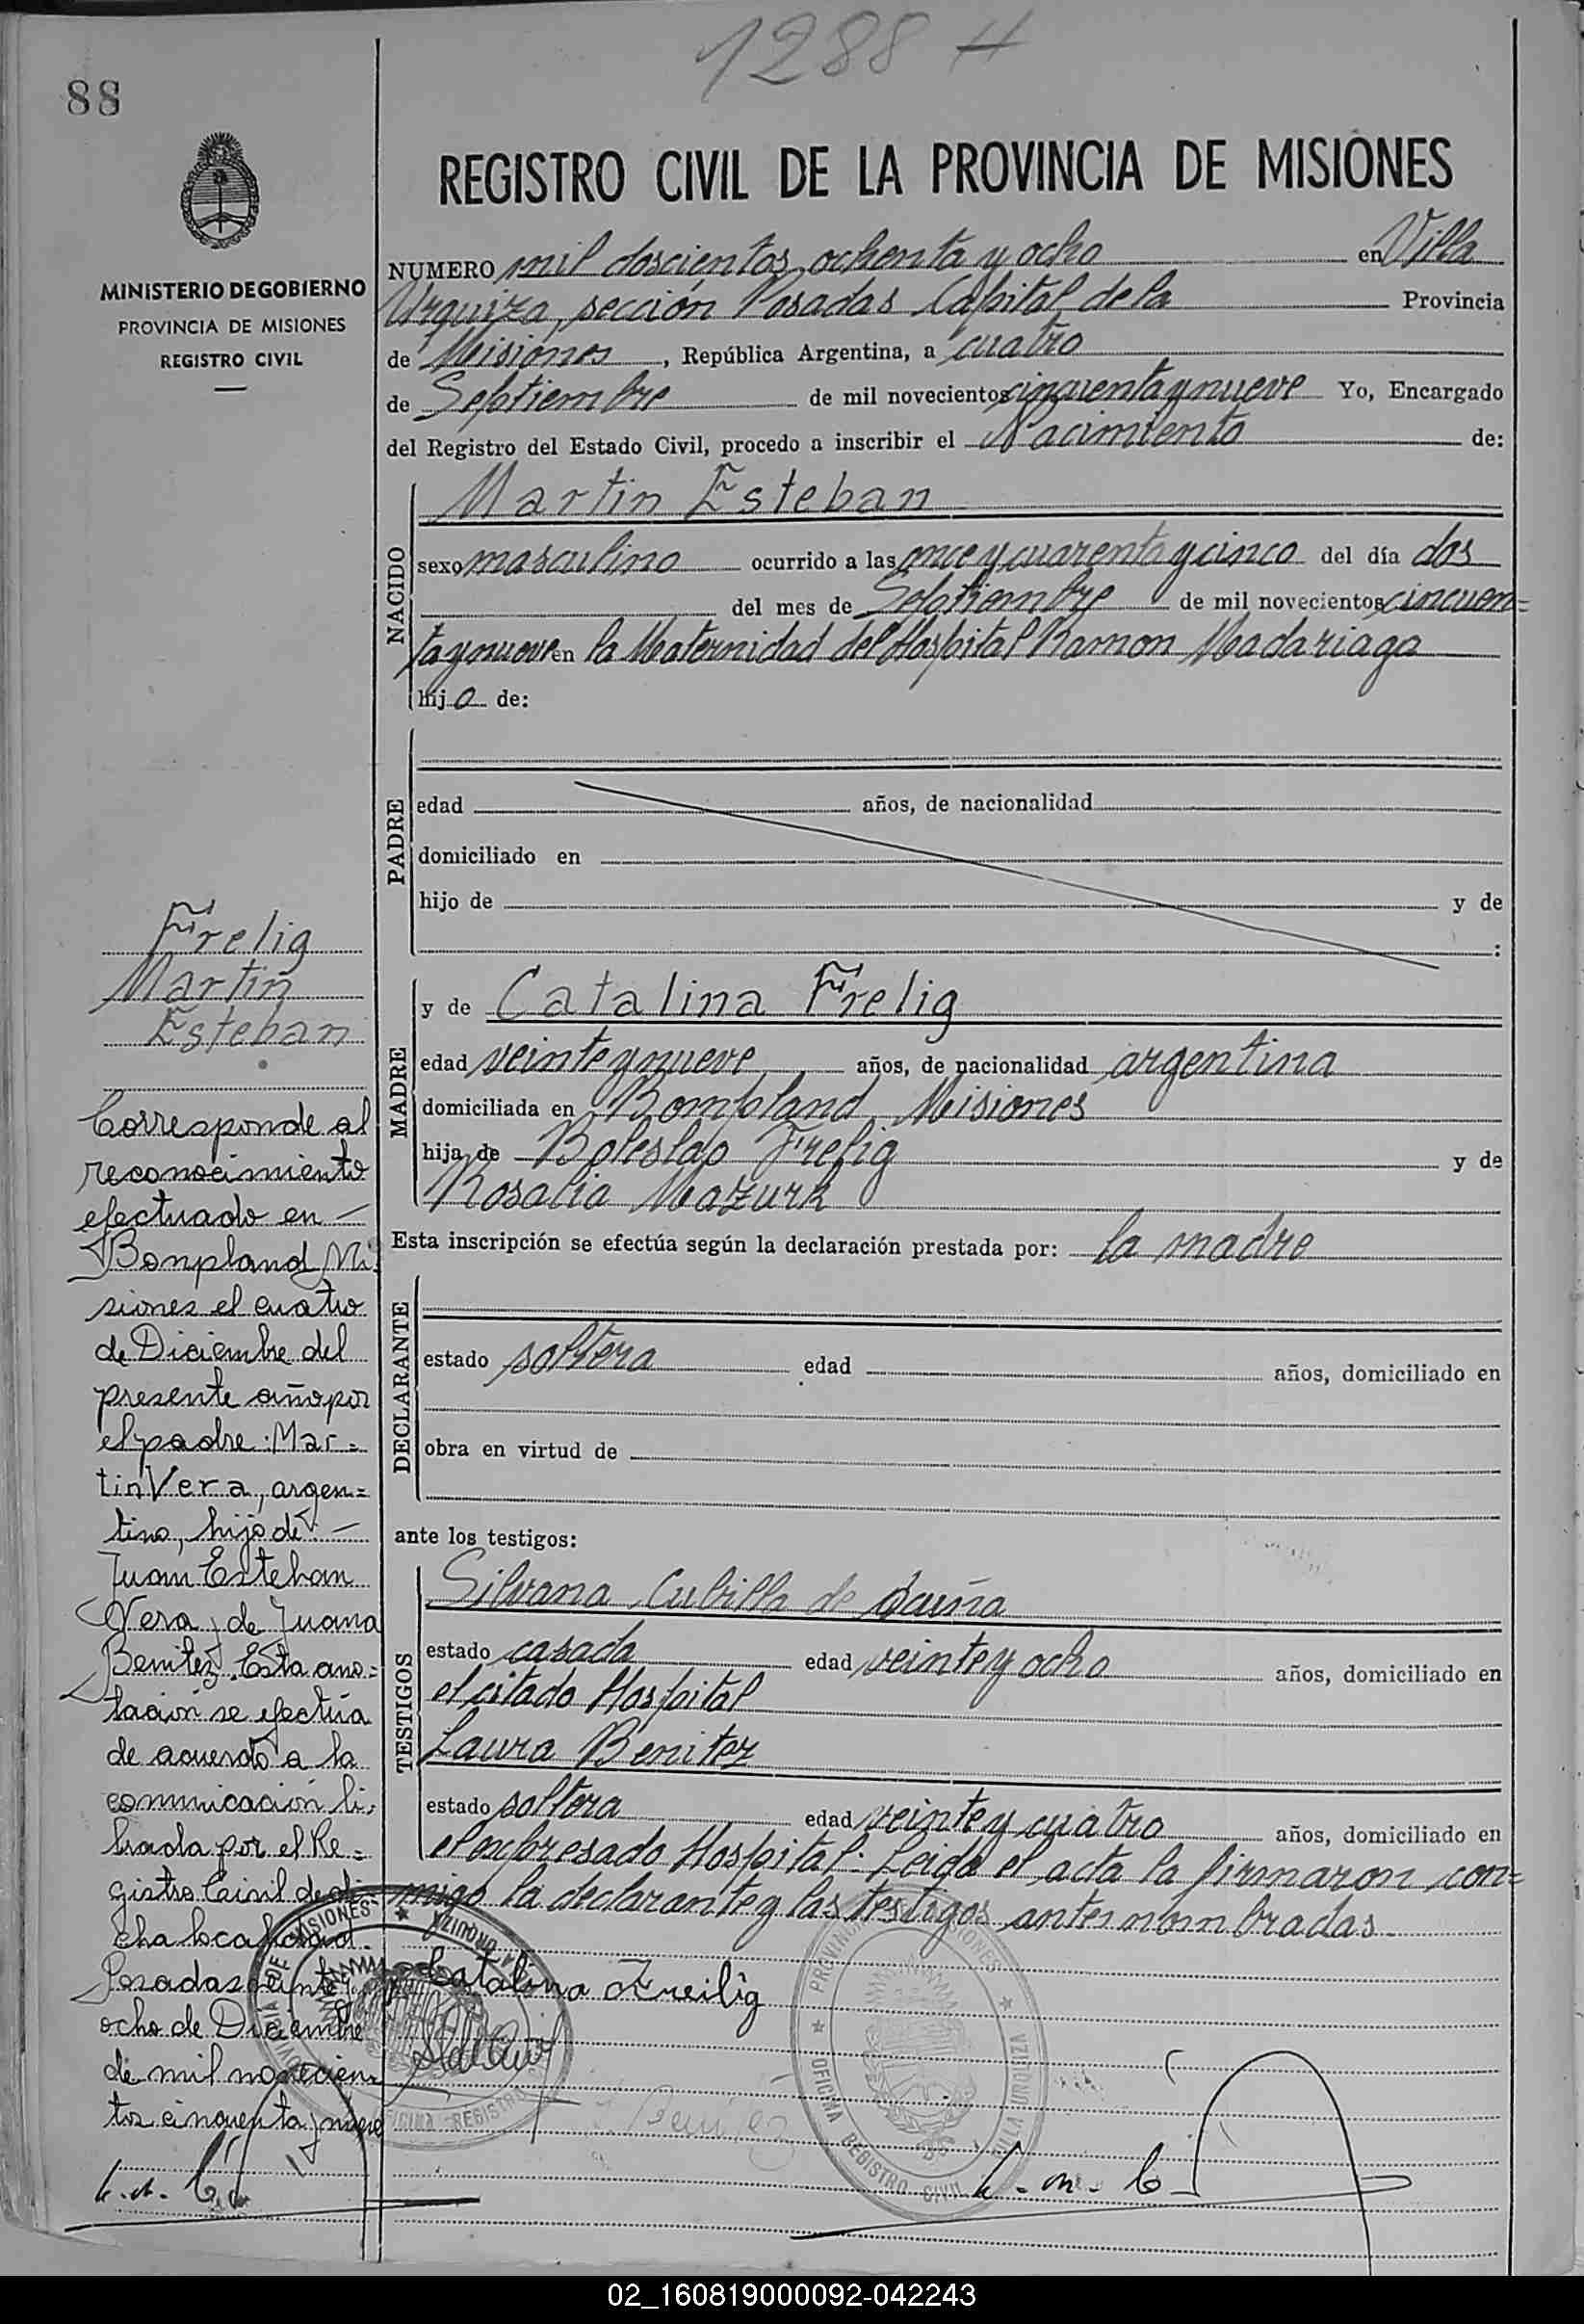 1288 H
88
REGISTRO CIVIL DE LA PROVINCIA DE MISIONES
MINISTERIO DE GOBIERNO
PROVINCIA DE MISIONES
REGISTRO CIVIL
NUMERO mil doscientos ochenta y ocho en Villa
Urquiza, sección Posadas Capital de la Provincia
de Misiones, República Argentina, a cuatro
de Septiembre de mil novecientos cincuenta y nueve Yo, Encargado
del Registro del Estado Civil, procedo a inscribir el Nacimiento de:
NACIDO
Martin Esteban
sexo masculino ocurrido a las once y cuarenta y cinco del día dos
del mes de Septiembre de mil novecientos cincuen=
ta y nueve en la Maternidad del Hospital Ramon Madariaga
hijo de:
PADRE
edad años, de nacionalidad
domiciliado en
hijo de y de
:
MADRE
y de Catalina Frelig
edad veinte y nueve años, de nacionalidad argentina
domiciliada en Bompland, Misiones
hija de Boleslao Frelig y de
Rosalia Mazurk
Esta inscripción se efectúa según la declaración prestada por: la madre
DECLARANTE
estado soltera edad años, domiciliado en
obra en virtud de
ante los testigos:
TESTIGOS
Silvana Cubilla de
estado casada edad veinte y ocho años, domiciliado en
el citado Hospital
Laura Benitez
estado soltera edad veinte y cuatro años, domiciliado en
el expresado Hospital. Leida el acta la firmaron con=
migo la declarante y las testigos antes nombradas
Catalina Freilig
Benitez
Frelig
Martin
Esteban
Corresponde al
reconocimiento
efectuado en —
Bonpland, Mi
siones el cuatro
de Diciembre del
presente año por
el padre: Mar=
tin Vera, argen=
tino, hijo de: —
Juan Esteban
Vera y de Juana
Benitez. Esta ano=
tación se efectúa
de acuerdo a la
comunicación li=
brada por el Re=
gistro Civil de di=
cha localidad.
Posadas veinte y
ocho de Diciembre
de mil novecien=
tos cincuenta y nueve
PROVINCIA DE MISIONES ★ VILLA URQUIZA
OFICINA REGISTRO
PROVINCIA DE MISIONES ★ VILLA URQUIZA
★ OFICINA REGISTRO CIVIL
02_160819000092-042243